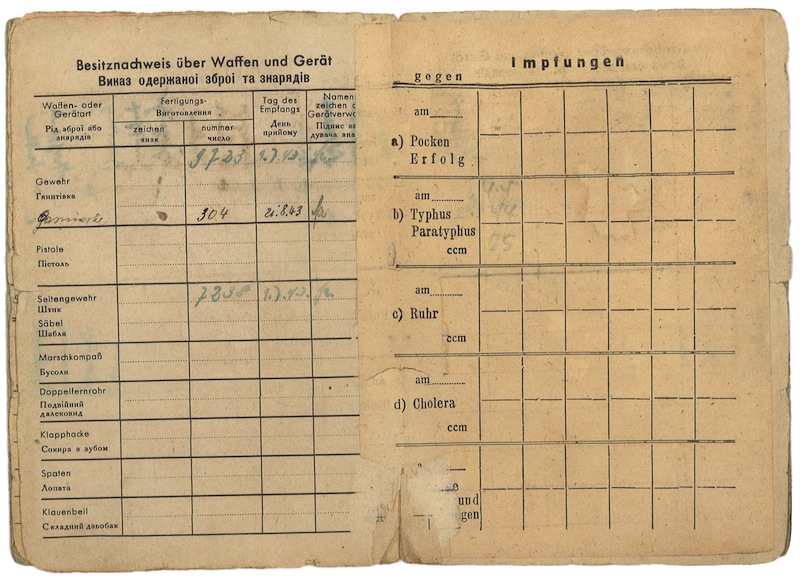 Besitznachweis über Waffen und Gerät
Виказ одержаної зброї та знарядів
Waffen- oder Gerätart
Рід зброї або знарядів
Fertigungs-
Виготовлення
zeichen
знак
nummer
число
Tag des Empfangs
День прийому
Namens
zeichen
Gerätverwa
Підпис
9725
Gewehr
Гвинтівка
Gasmaske 304 21.8.43
Pistole
Пістоль
Seitengewehr 7238
Штик
Säbel
Шабля
Marschkompaß
Бусоля
Doppelfernrohr
Подвійний
далековид
Klapphacke
Сокира з зубом
Spaten
Лопата
Klauenbeil
Складний дзьобак
Impfungen
gegen
am
a) Pocken
Erfolg
am
b) Typhus
Paratyphus
ccm
am
c) Ruhr
ccm
am
d) Cholera
ccm
und
gen